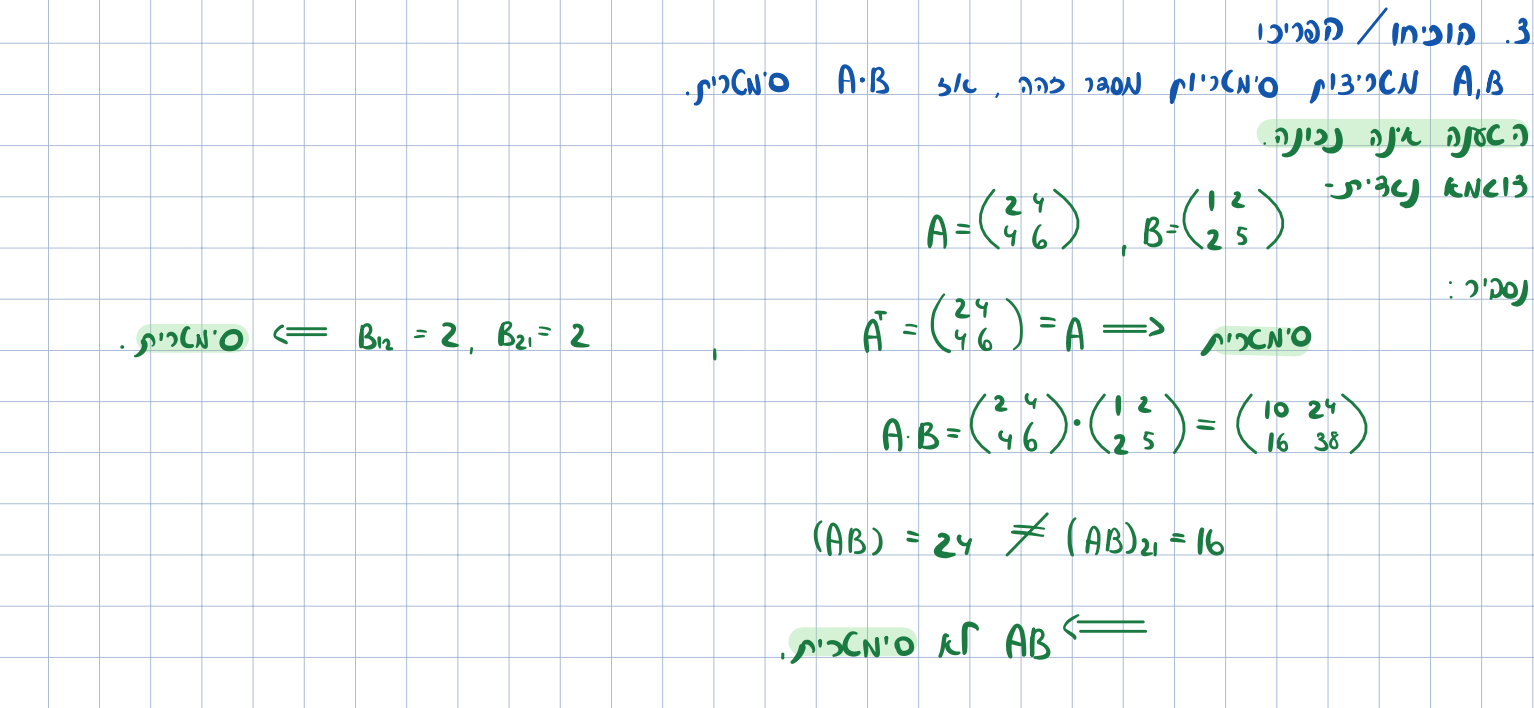 3. הוכיחו / הפריכו
A,B מטריצות סימטריות מסדר זהה, אז A·B סימטרית.
הטענה אינה נכונה.
דוגמא נגדית-
A = (2 4 / 4 6) , B = (1 2 / 2 5)
נסביר:
Aᵀ = (2 4 / 4 6) = A ⟹ סימטרית , B₁₂ = 2, B₂₁ = 2 ⟸ סימטרית.
A·B = (2 4 / 4 6) · (1 2 / 2 5) = (10 24 / 16 38)
(AB) = 24 ≠ (AB)₂₁ = 16
⟸ AB לא סימטרית.